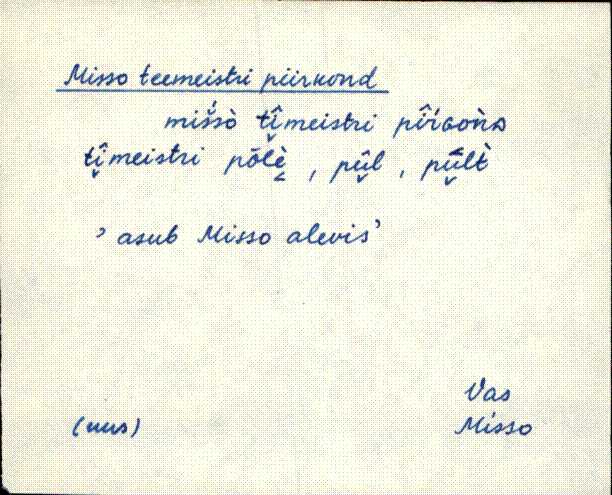 Misso teemeistri piirkond
miśśò tî̬meistri pîŕGoǹᴅ
tî̬meistri pōlè̬, pṷ̂l, pṷ̄lt̀
’asub Misso alevis’
Vas
(uus) Misso